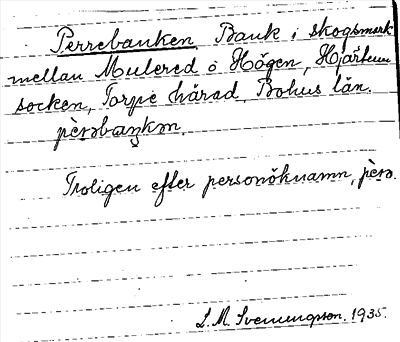 Perrebanken Bank i skogsmark
mellan Mulered o Högen, Hjärtum
socken, Torpe härad, Bohus län.
pèrəbaŋkən.
Troligen efter personöknamn, pèrə.
L. M. Svenungsson. 1935.